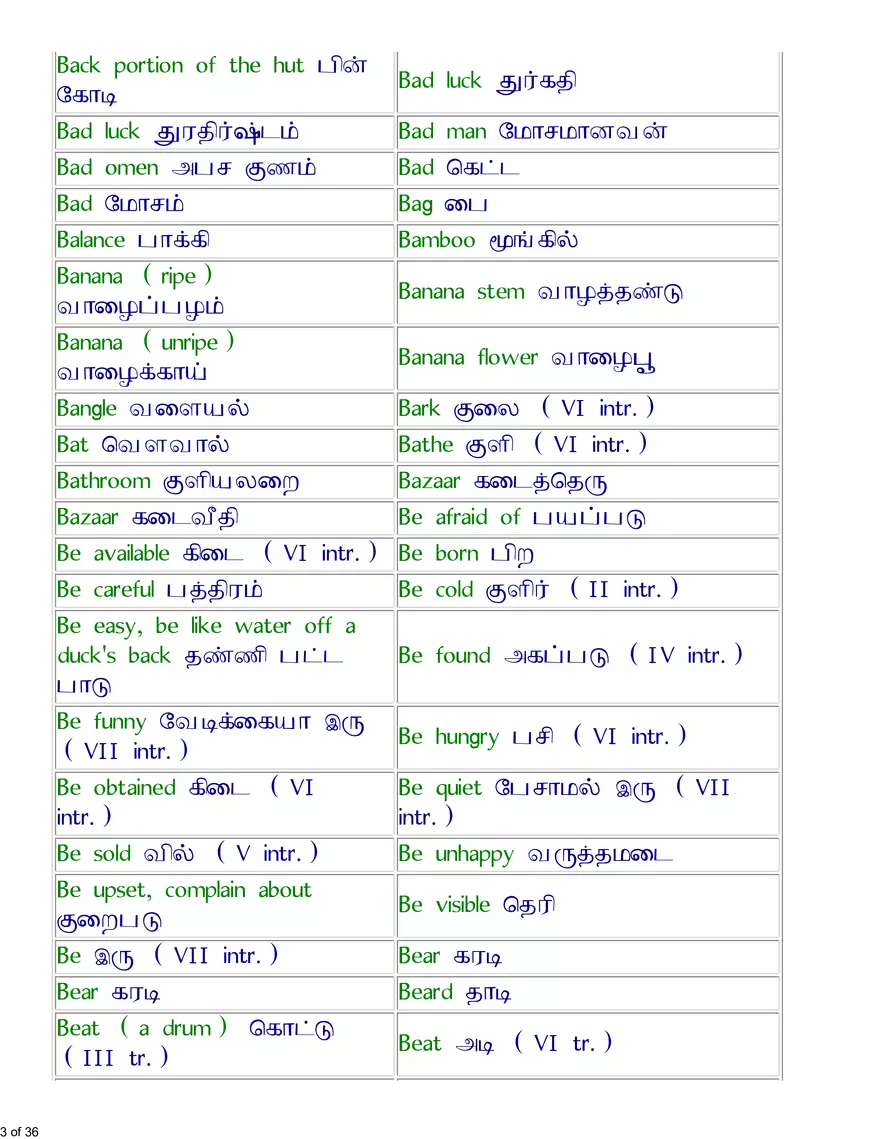 Back portion of the hut பின்
கோடி
Bad luck துர்கதி
Bad luck துரதிர்ஷ்டம்
Bad man மோசமானவன்
Bad omen அபச குணம்
Bad கெட்ட
Bad மோசம்
Bag பை
Balance பாக்கி
Bamboo மூங்கில்
Banana ( ripe )
வாழைப்பழம்
Banana stem வாழத்தண்டு
Banana ( unripe )
வாழைக்காய்
Banana flower வாழைபூ
Bangle வளையல்
Bark குலை ( VI intr. )
Bat வெளவால்
Bathe குளி ( VI intr. )
Bathroom குளியலறை
Bazaar கடைத்தெரு
Bazaar கடைவீதி
Be afraid of பயப்படு
Be available கிடை ( VI intr. )
Be born பிற
Be careful பத்திரம்
Be cold குளிர் ( II intr. )
Be easy, be like water off a
duck's back தண்ணி பட்ட
பாடு
Be found அகப்படு ( IV intr. )
Be funny வேடிக்கையா இரு
( VII intr. )
Be hungry பசி ( VI intr. )
Be obtained கிடை ( VI
intr. )
Be quiet பேசாமல் இரு ( VII
intr. )
Be sold வில் ( V intr. )
Be unhappy வருத்தமடை
Be upset, complain about
குறைபடு
Be visible தெரி
Be இரு ( VII intr. )
Bear கரடி
Bear கரடி
Beard தாடி
Beat ( a drum ) கொட்டு
( III tr. )
Beat அடி ( VI tr. )
3 of 36